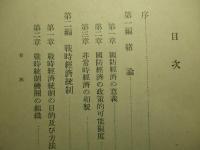 目次
序
第一編 緒論
第一章 國防經濟の意義
第二章 國防經濟の政策的可能限度
第三章 非常時經濟の相貌
第二編 戰時經濟統制
第一章 戰時經濟統制の目的及び方法
第二章 戰時統制機關の組織
目次